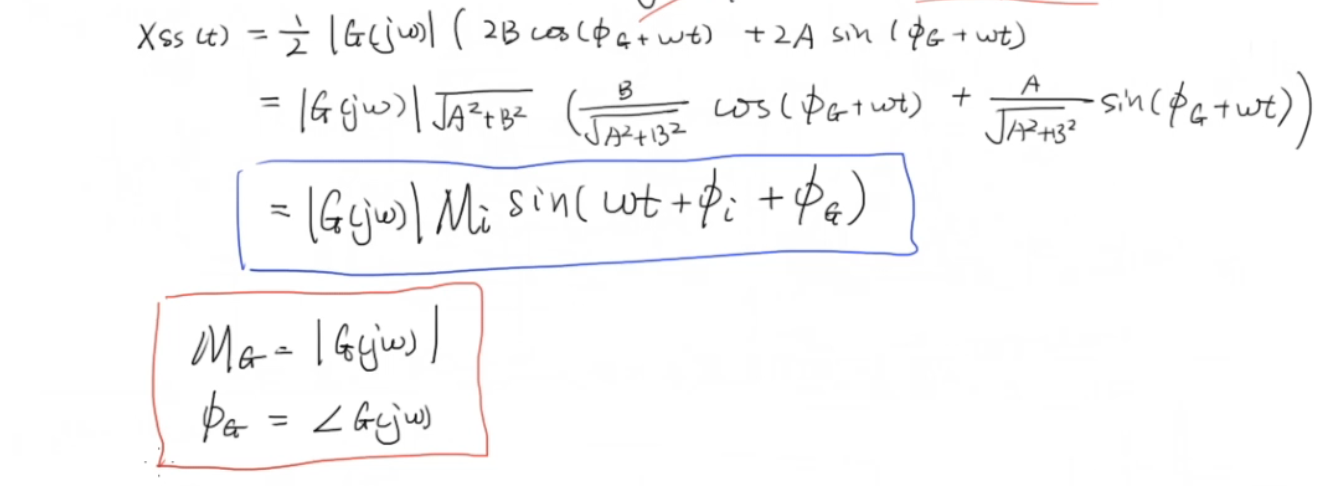 Xss(t) = 1/2 |G(jω)| ( 2B cos(ϕG+ωt) + 2A sin(ϕG+ωt)
= |G(jω)| √(A²+B²) (B/√(A²+B²) cos(ϕG+ωt) + A/√(A²+B²) sin(ϕG+ωt))
= |G(jω)| Mi sin(ωt+ϕi+ϕG)
MG = |G(jω)|
ϕG = ∠G(jω)